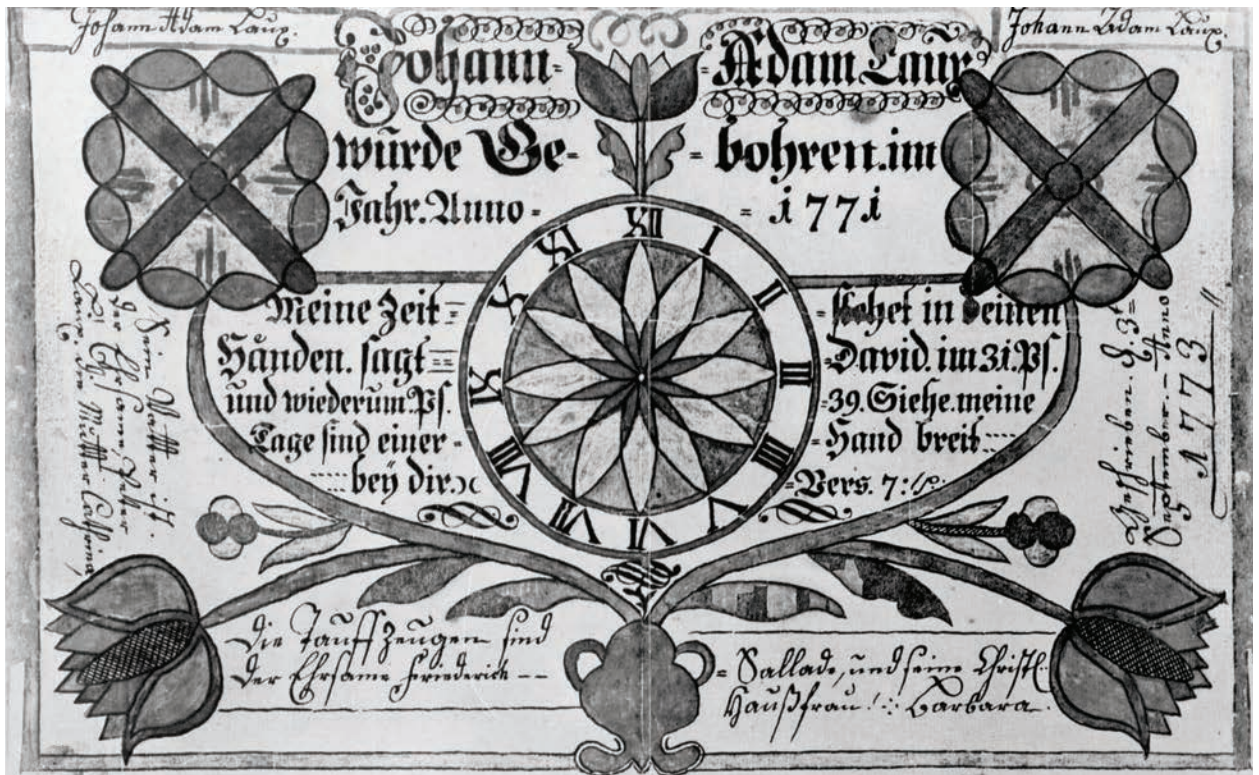 Johann Adam Laux.
Johann Adam Laux.
Johann= =Adam Laux
würde Ge- =bohren.im
Jahr.Anno= =1771
XII
I
II
III
IIII
V
VI
VII
VIII
IX
X
XI
Meine Zeit= =stehet in deinen
Händen. sagt= =David.im 31.Ps.
und wiederum.Ps. =39.Siehe.meine
Tage sind einer- =Hand breit
bey dir. =Vers. 7:
Sein Vatter ist.
der Ehrsame,
Laux, Die Mutter Cathrina,
Geschrieben. d. 3t=
September.- Anno
1773
Die Tauff Zeugen sind
Der Ehrsame Friederich --
=Sallade, und seine Christl.
Haußfrau: Barbara.